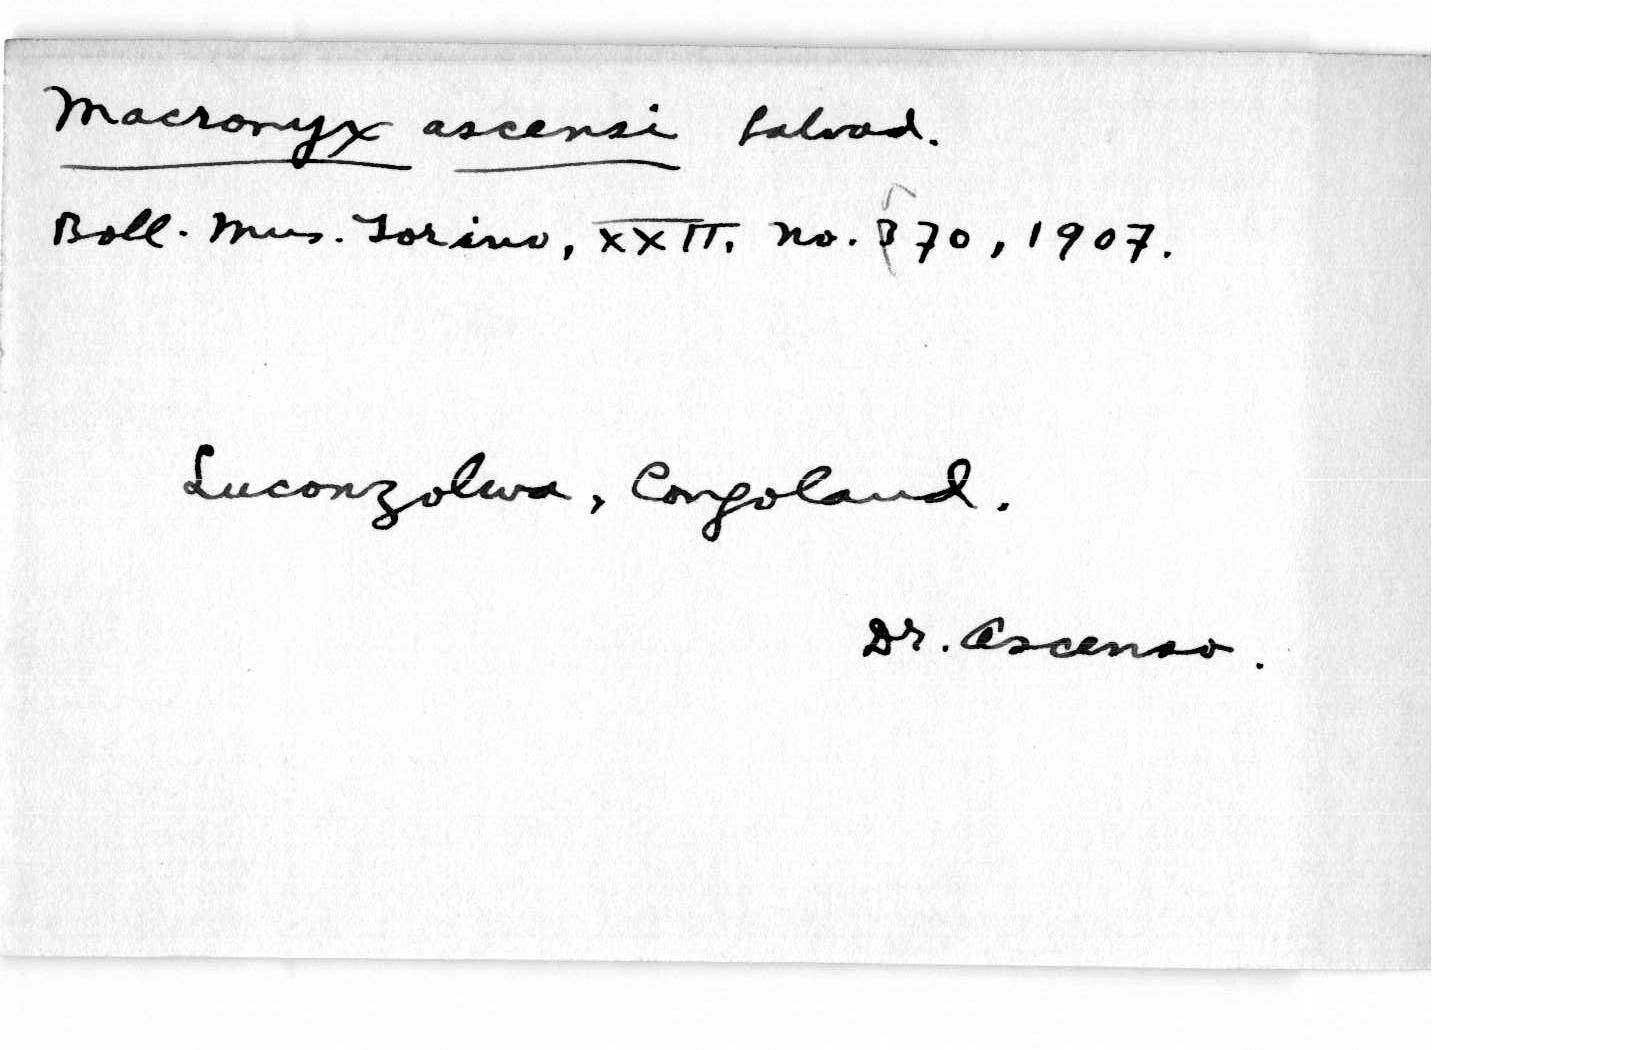 Macronyx ascensi Salvad.
Boll. Mus. Torino, XXII, No. 570, 1907.
Luconzolwa, Congoland.
Dr. Ascenso.